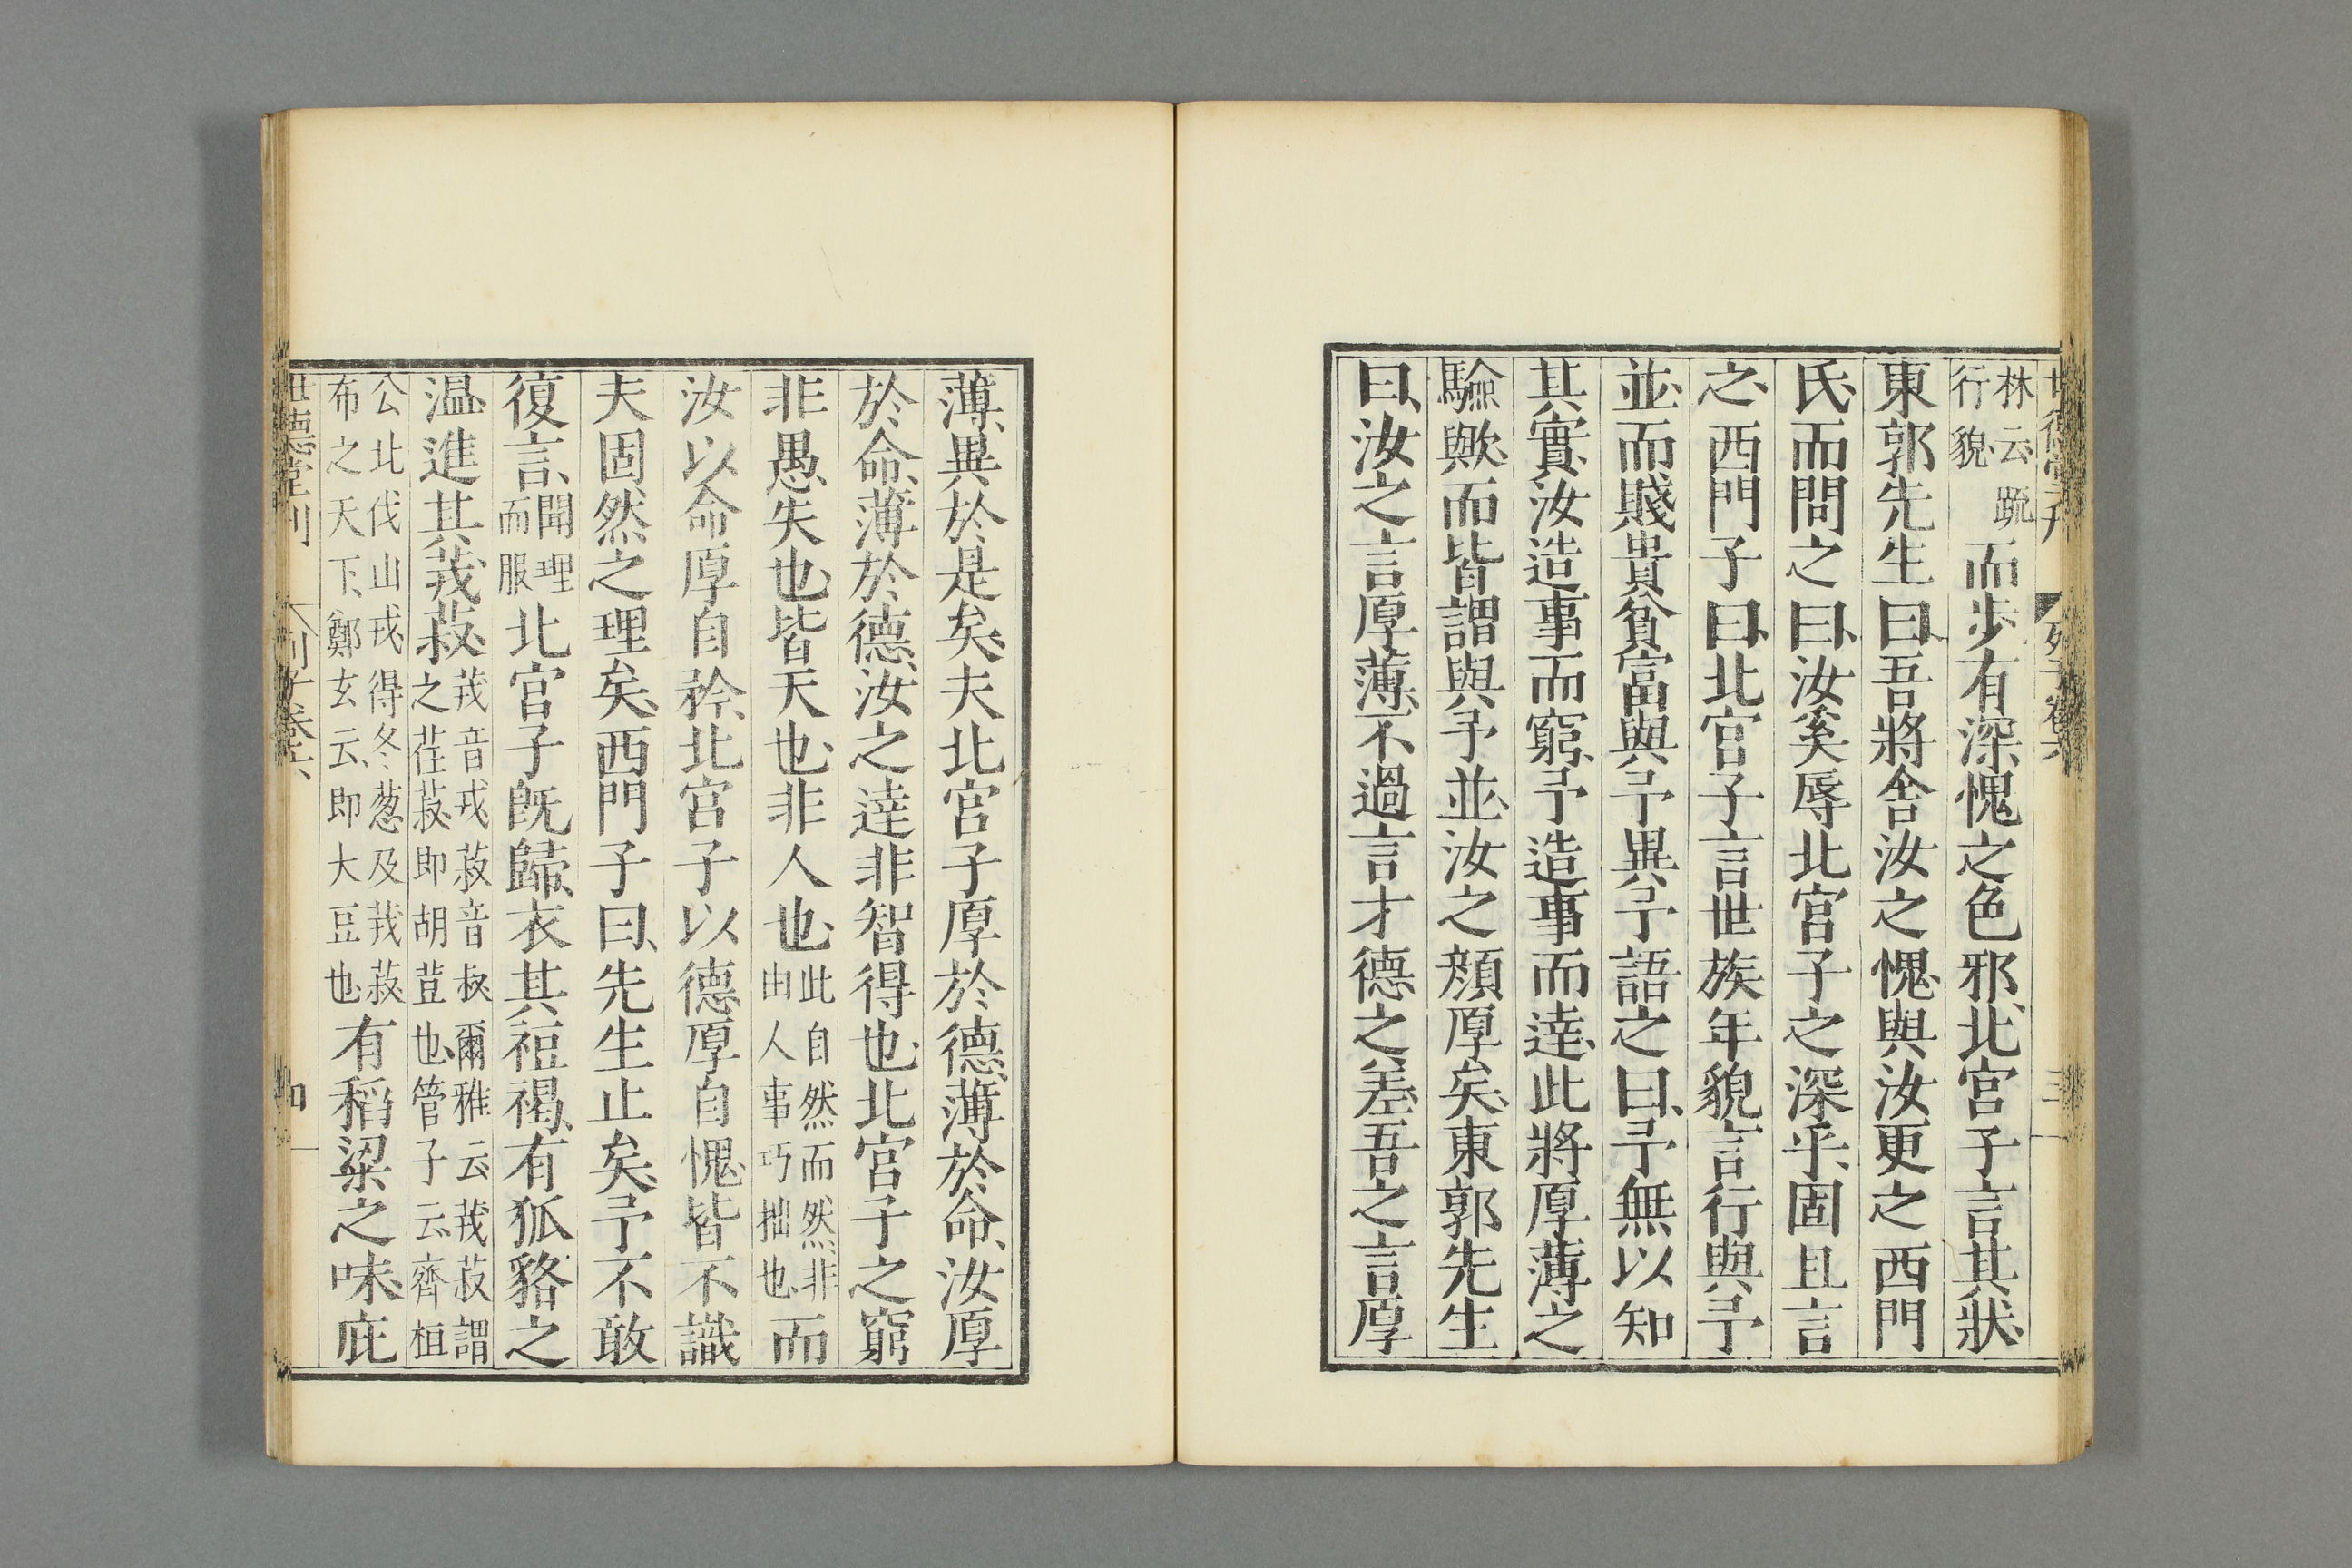 世德堂刊 列子卷六 三
林云踈行貌而步有深愧之色邪、北宮子言其狀、
東郭先生曰、吾將舍汝之愧、與汝更之西門
氏、而問之曰、汝奚辱北宮子之深乎、固且言
之、西門子曰、北宮子言世族年貌言行與予
並、而賤貴貧富與予異、予語之曰、予無以知
其實、汝造事而窮、予造事而達、此將厚薄之
驗歟、而皆謂與予並、汝之顏厚矣、東郭先生
曰、汝之言厚薄、不過言才德之差、吾之言厚
薄、異於是矣、夫北宮子厚於德、薄於命、汝厚
於命、薄於德、汝之達非智得也、北宮子之窮
非愚失也、皆天也、非人也、此自然而然、非由人事巧拙也、而
汝以命厚自矜、北宮子以德厚自愧、皆不識
夫固然之理矣、西門子曰、先生止矣、予不敢
復言、聞理而服北宮子既歸、衣其裋褐、有狐貉之
温、進其茙菽、茙音戎、菽音叔、爾雅云、茙菽謂之荏菽、即胡荳也、管子云、齊桓
公北伐山戎、得冬葱及茙菽、布之天下、鄭玄云、即大豆也、有稻粱之味、庇
世德堂刊 列子卷六 四